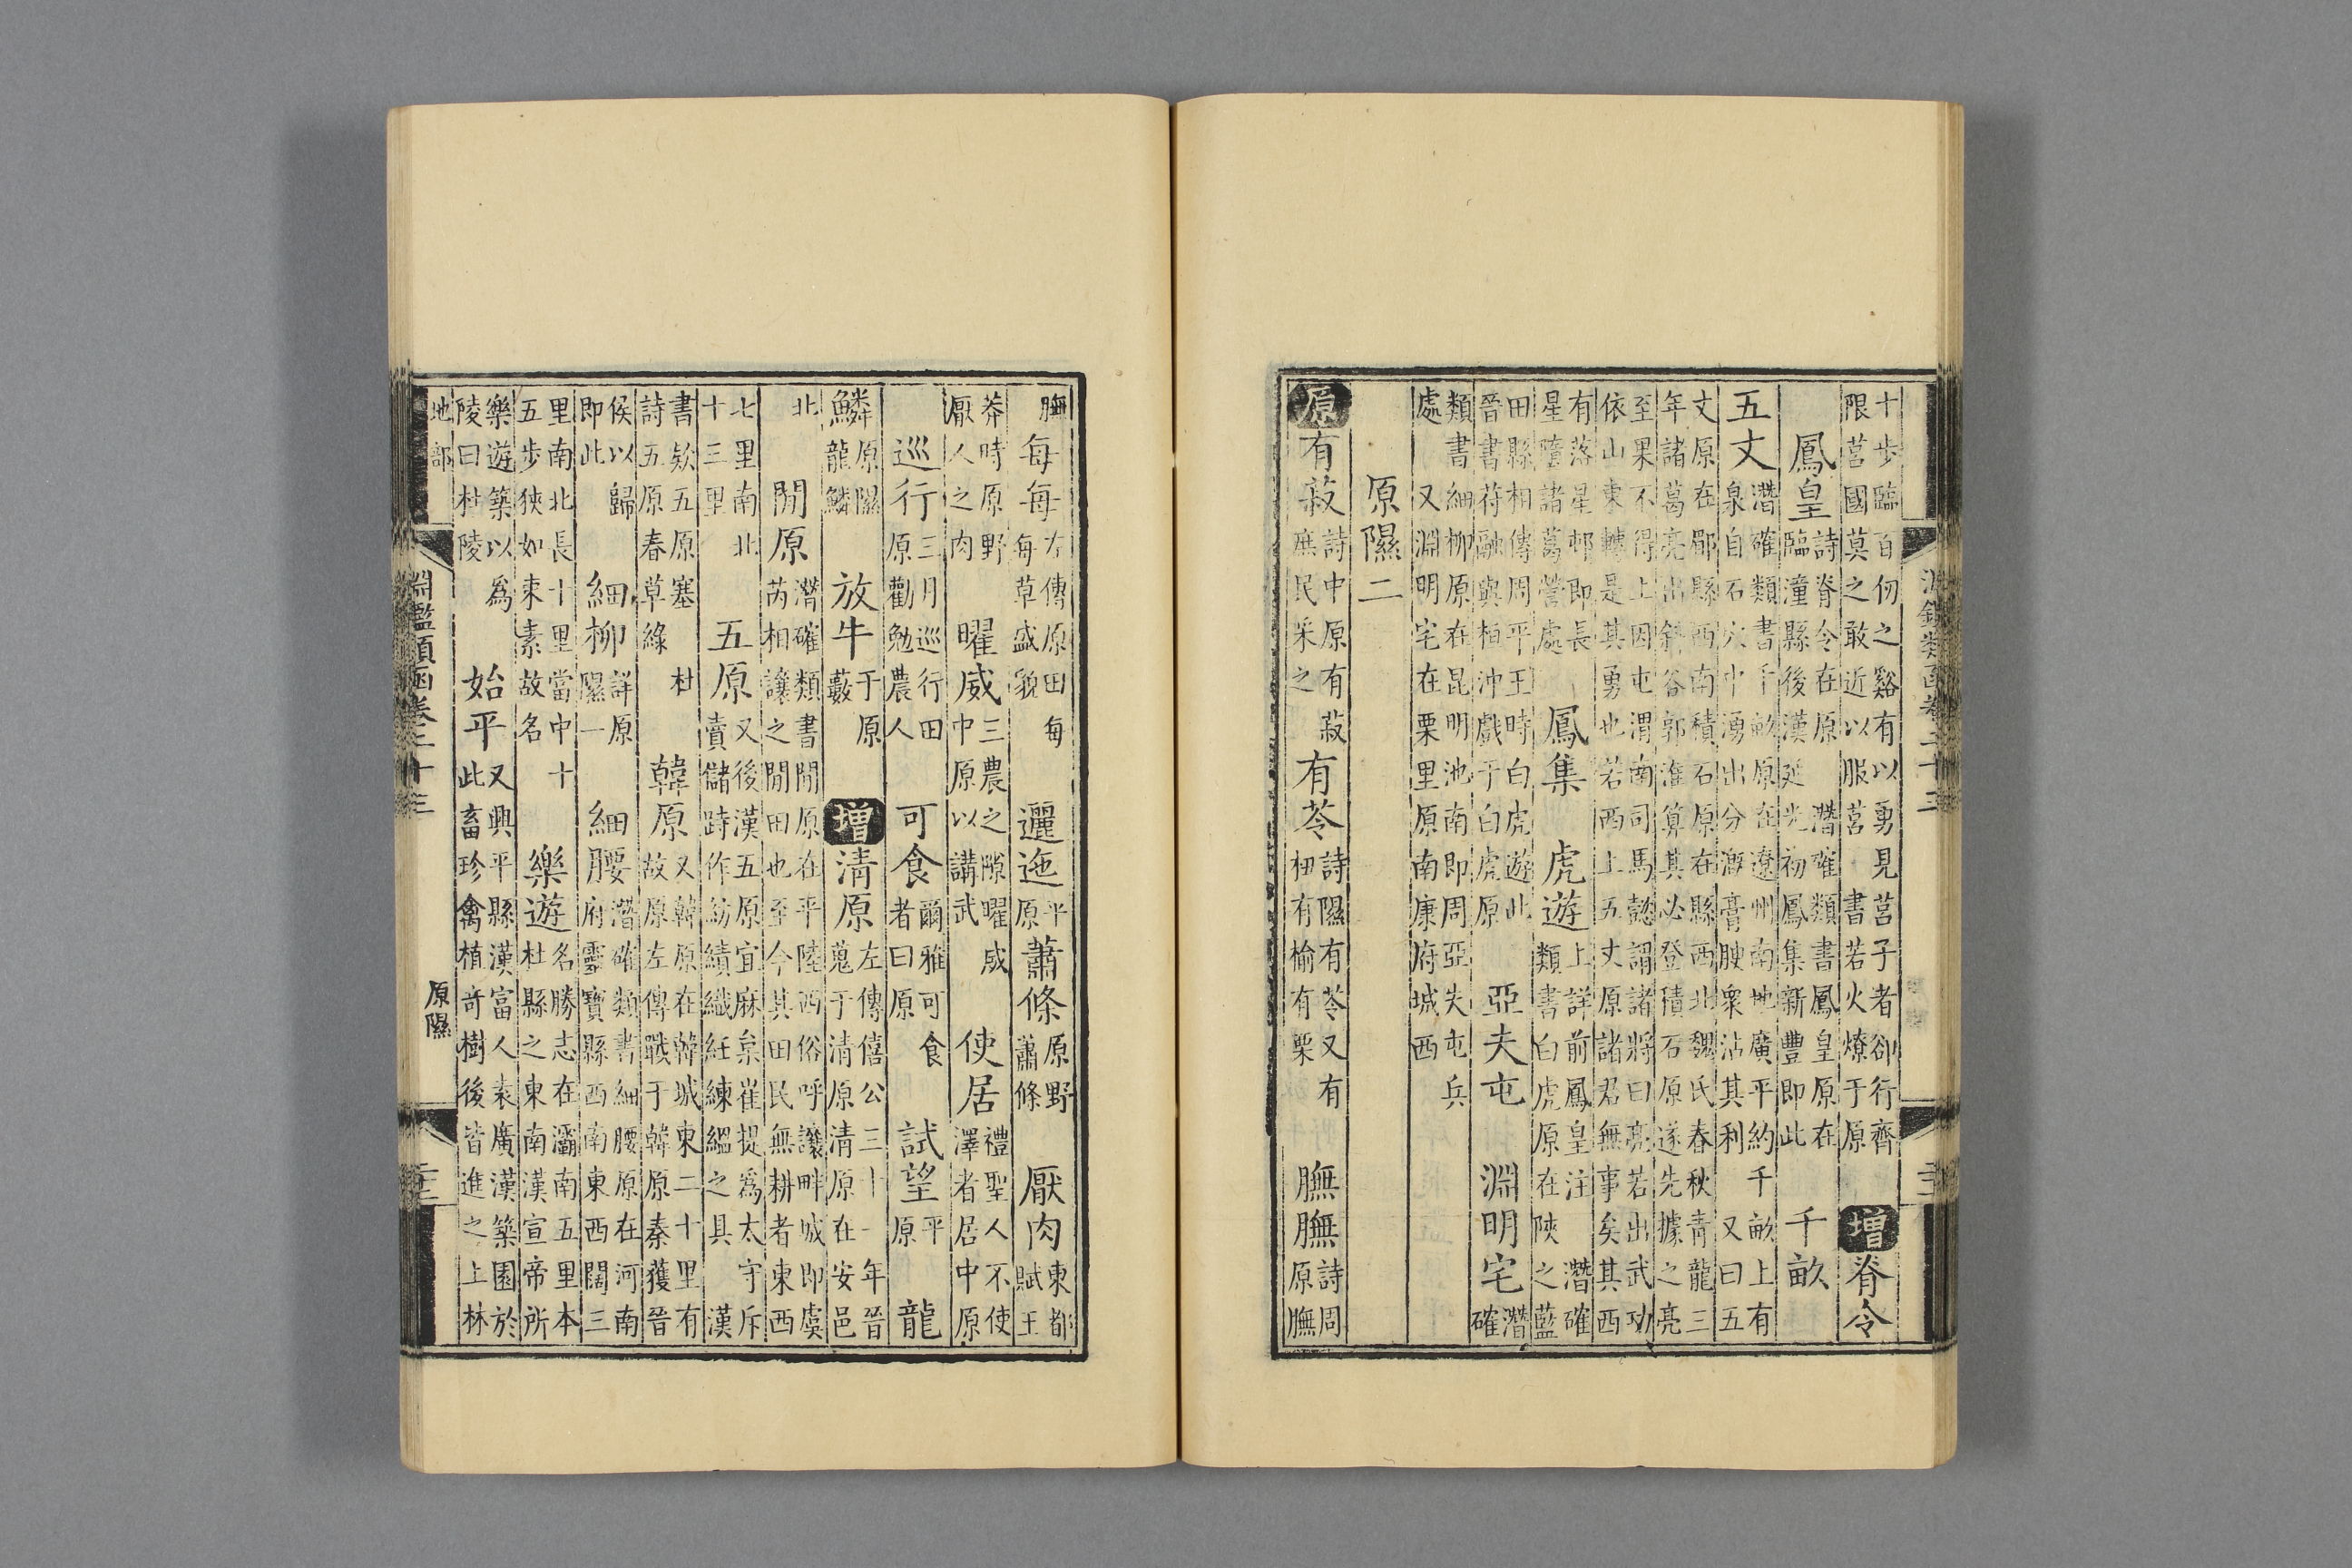 淵鑑類函卷二十三
十步臨百仞之谿有以勇見莒子者卻行齊限莒國莫之敢近以服莒 書若火燎于原 增脊令
鳳皇詩脊令在原 潛確類書鳳皇原在臨潼縣後漢延光初鳳集新豐即此 千畝
五丈潛確類書千畝原在遼州南地廣平約千畝上有泉自石穴中湧出分漑膏腴衆沾其利 又曰五
丈原在郿縣西南積石原在縣西北魏氏春秋青龍三年諸葛亮出斜谷郭淮算其必登積石原遂先據之亮
至果不得上因屯渭南司馬懿謂諸將曰亮若出武功依山東轉是其勇也若西上五丈原諸君無事矣其西
有落星邨即長星墮諸葛營處 鳳集 虎遊上詳前鳳皇注 潛確類書白虎原在陝之藍
田縣相傳周平王時白虎遊此晉書苻融與桓沖戲于白虎原 亞夫屯 淵明宅潛確
類書細柳原在昆明池南即周亞夫屯兵處 又淵明宅在栗里原南康府城西
原隰二
原有菽詩中原有菽庶民采之 有苓詩隰有苓又有杻有榆有栗 膴膴詩周原膴
膴 每每左傳原田每每草盛貌 邐迤平原 蕭條原野蕭條 厭肉東都賦王
莽時原野厭人之肉 曜威三農之隙曜威中原以講武 使居禮聖人不使澤者居中原
巡行三月巡行田原勸勉農人 可食爾雅可食者曰原 試望平原 龍
鱗原隰龍鱗 放牛于原藪 增清原左傳僖公三十一年晉蒐于清原清原在安邑
北 閒原潛確類書閒原在平陸西俗呼讓畔城即虞芮相讓之閒田也至今其田民無耕者東西
七里南北十三里 五原又後漢五原宜麻枲崔提爲太守斥賣儲跱作紡績織紝練縕之具 漢
書欸五原塞 杜詩五原春草綠 韓原又韓原在韓城東二十里有故原左傳戰于韓原秦獲晉
侯以歸即此 細柳詳原隰一 細腰潛確類書細腰原在河南府靈寶縣西南東西闊三
里南北長十里當中十五步狹如束素故名 樂遊名勝志在灞南五里本杜縣之東南漢宣帝所
樂遊築以爲陵曰杜陵 始平又興平縣漢富人袁廣漢築園於此畜珍禽植奇樹後皆進之上林
地部 淵鑑類函卷二十三 原隰